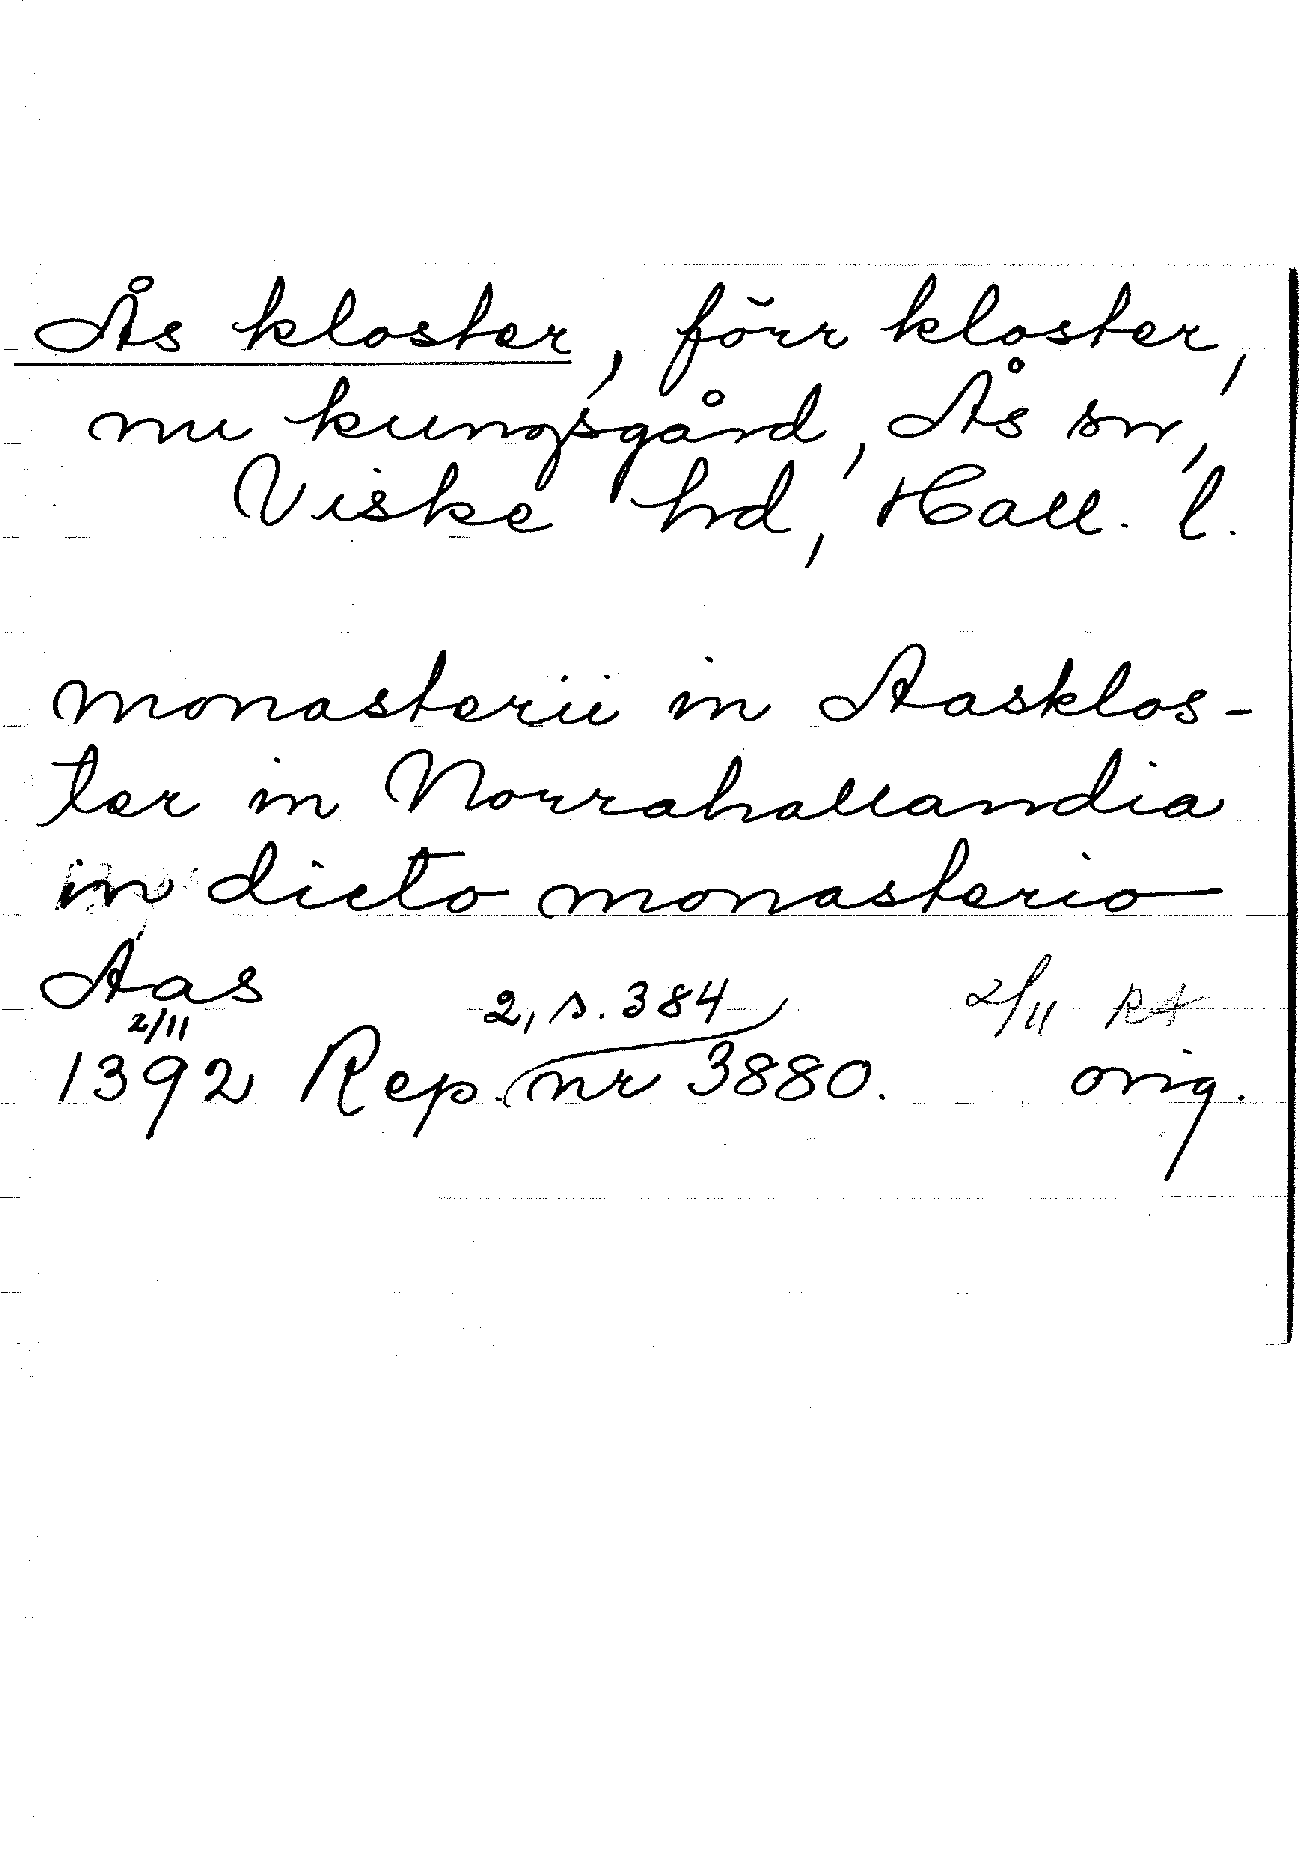 Ås kloster, förr kloster,
nu kungsgård, Ås sn,
Viske hd, Hall. l.
monasterii in Aasklos-
ter in Norrahallandia
in dicto monasterio
Aas
2/11 2, s. 384 2/11 RA
1392 Rep. nr 3880. orig.